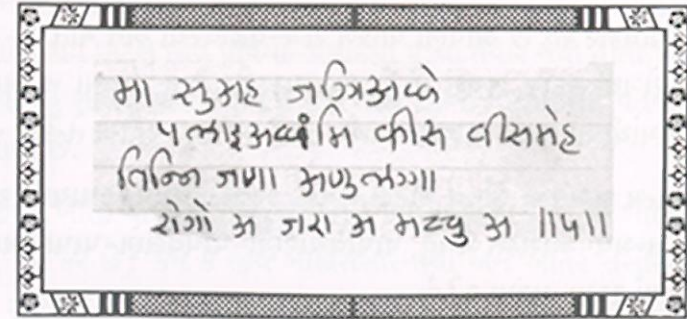 मा सुअह जग्गिअव्वे
पलाइअव्वंमि कीस वीसमेह
तिन्नि जणा अणुलग्गा
रोगो अ जरा अ मच्चु अ ॥५॥